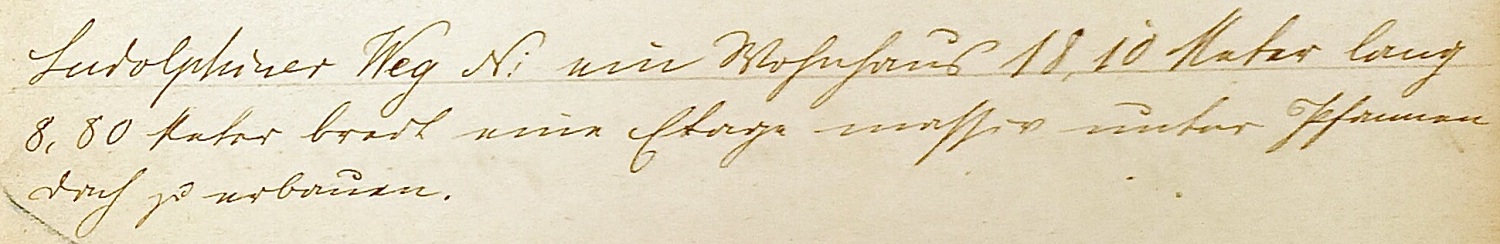 Ludolphiner Weg N: ein Wohnhaus 18,10 Meter lang
8,80 Meter breit eine Etage massiv unter Pfannen
dach zu erbauen.